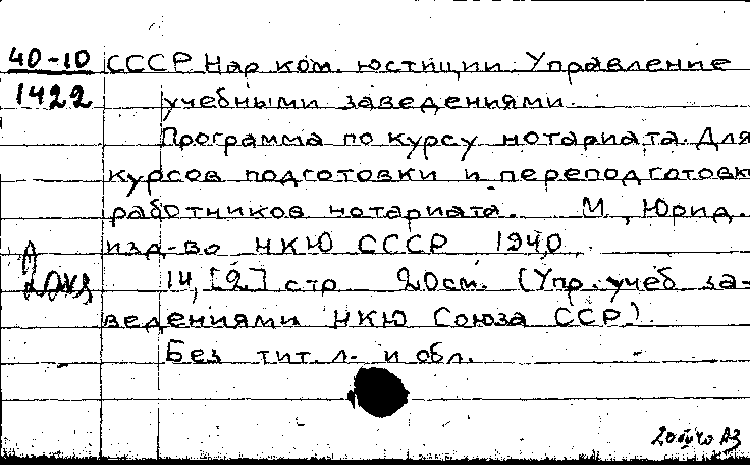 40-10
1422
СССР Нар. ком. юстиции. Управление
учебными заведениями.
Программа по курсу нотариата. Для
курсов подготовки и переподготовк
работников нотариата. М., Юрид.
изд-во НКЮ СССР 1940.
14, [2] стр. 20см. (Упр. учеб. за-
ведениями НКЮ Союза ССР.)
Без тит. л. и обл.